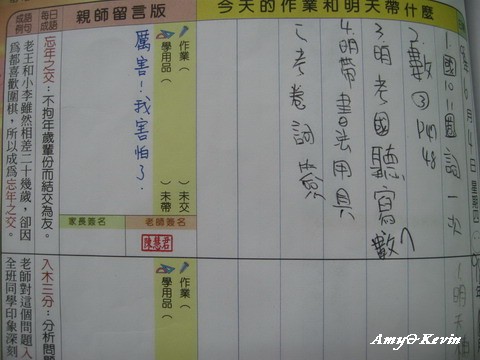 今天的作業和明天帶什麼
親師留言版
每日成語
成語例句
月14日星期四
1.國10、11圈詞一次
2.數③P47 48
3.明考國聽寫數
4.明帶書法用具
5.考卷訂簽
作業( )未交
學用品( )未帶
厲害!我害怕了.
家長簽名
老師簽名
陳慧君
忘年之交:不拘年歲輩份而結交為友。
老王和小李雖然相差二十幾歲,卻因
為都喜歡圍棋,所以成為忘年之交。
1.明天
作業(
學用品(
入木三分:分析問題
老師對這個問題入
全班同學印象深刻
Amy&Kevin